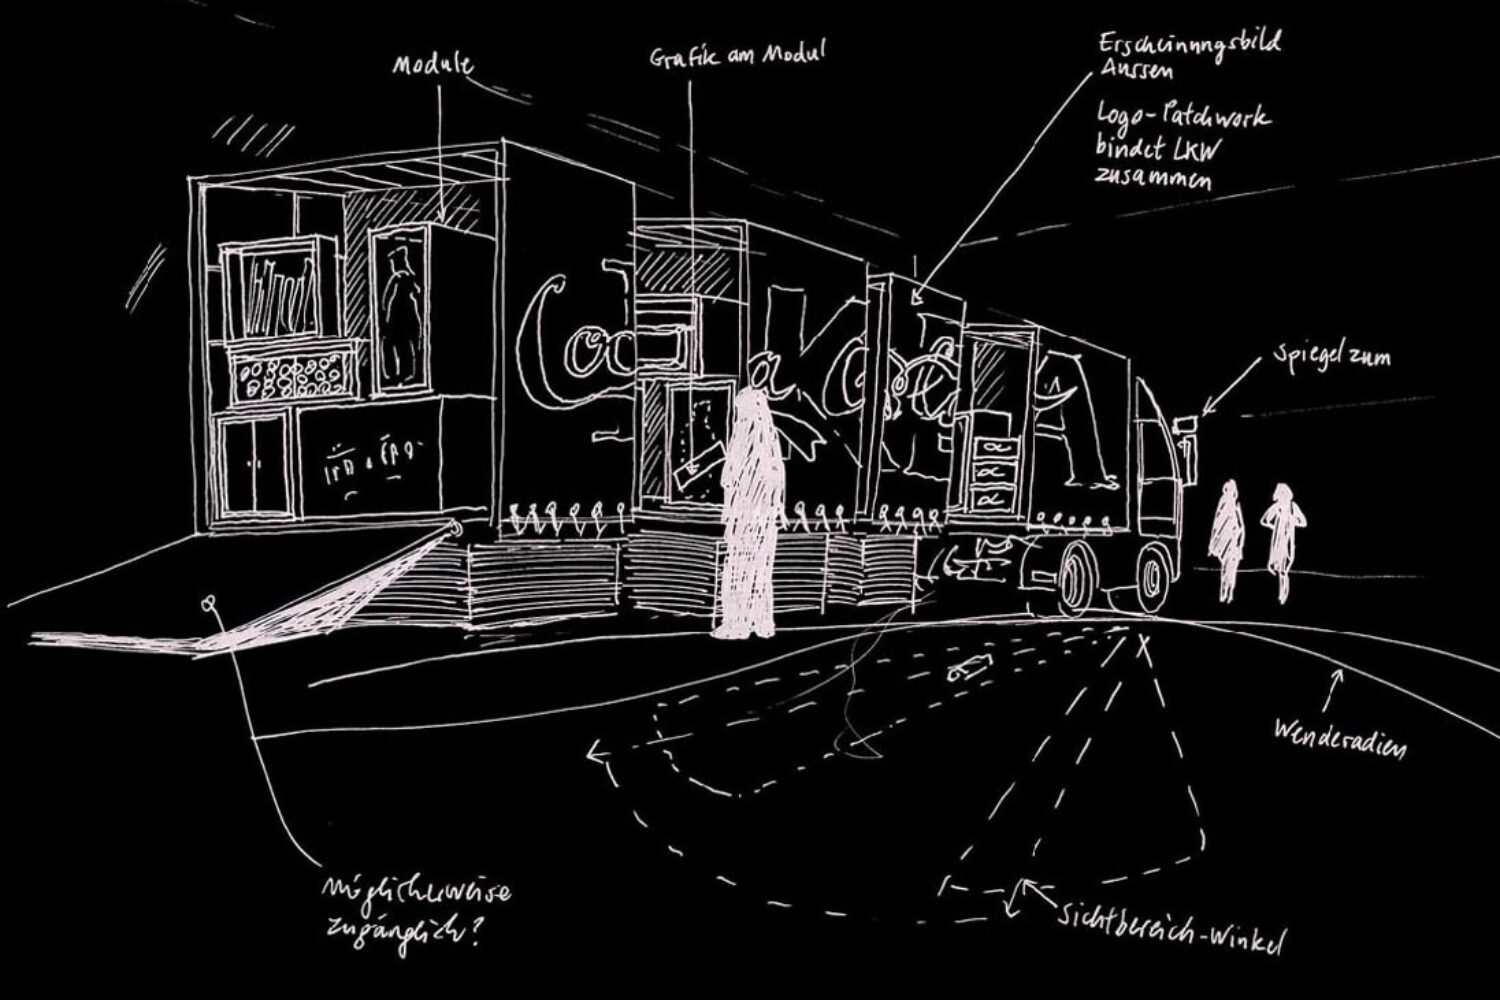 Module
Grafik am Modul
Erscheinungsbild
Aussen
Logo-Patchwork
bindet LKW
zusammen
Spiegel zum
Wenderadien
Sichtbereich-Winkel
Möglicherweise
zugänglich?